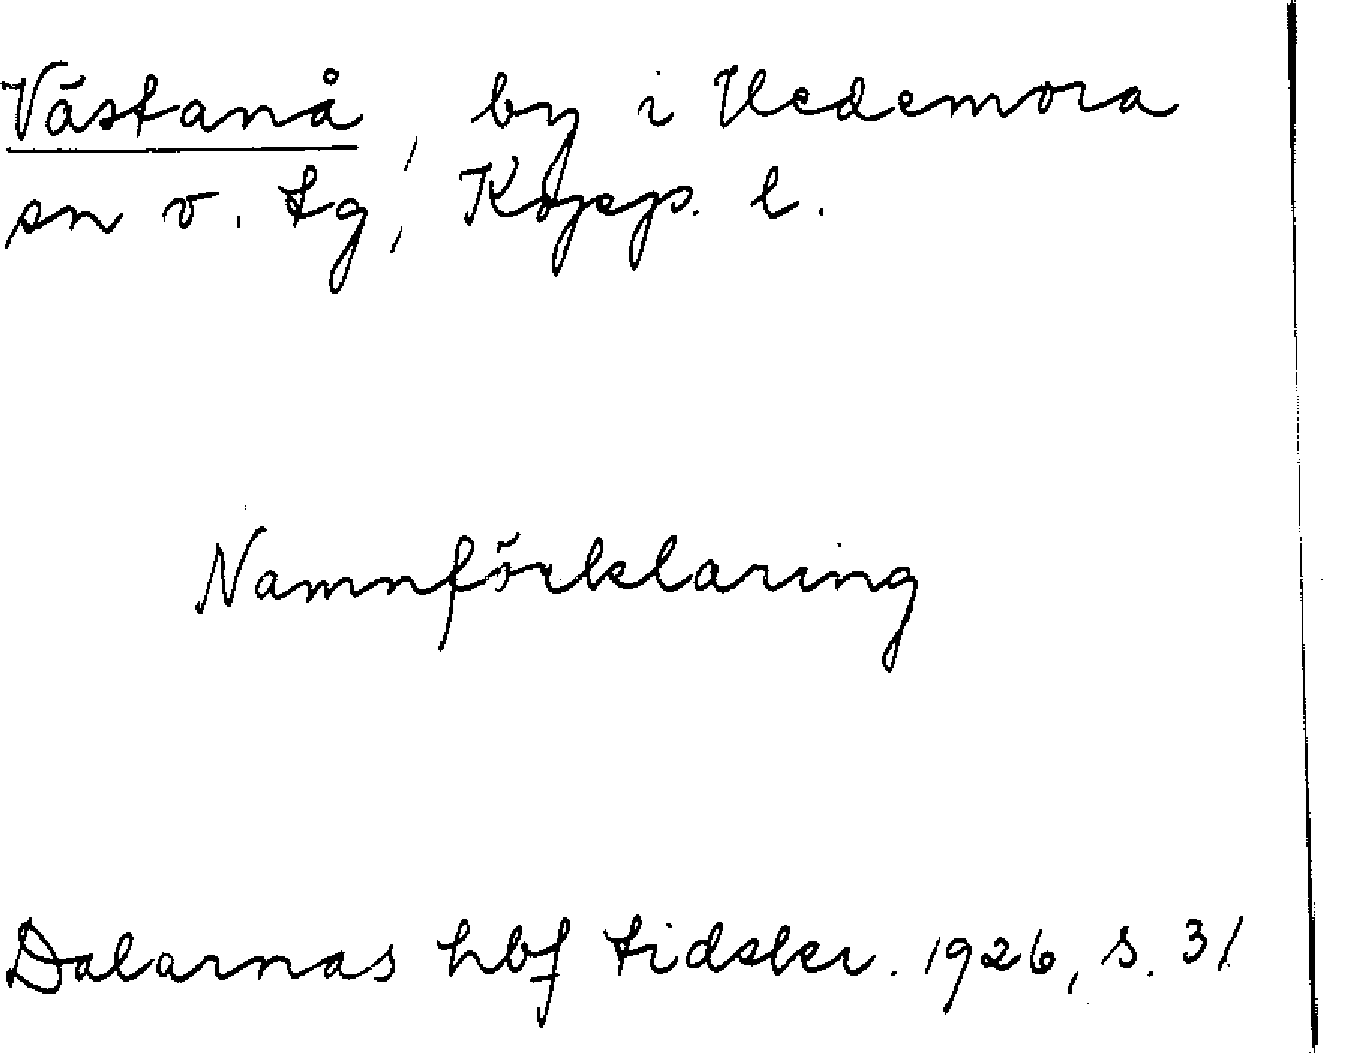 Västanå, by i Hedemora
sn o. tg, Kopp. l.
Namnförklaring
Dalarnas hbf tidskr. 1926, s. 31